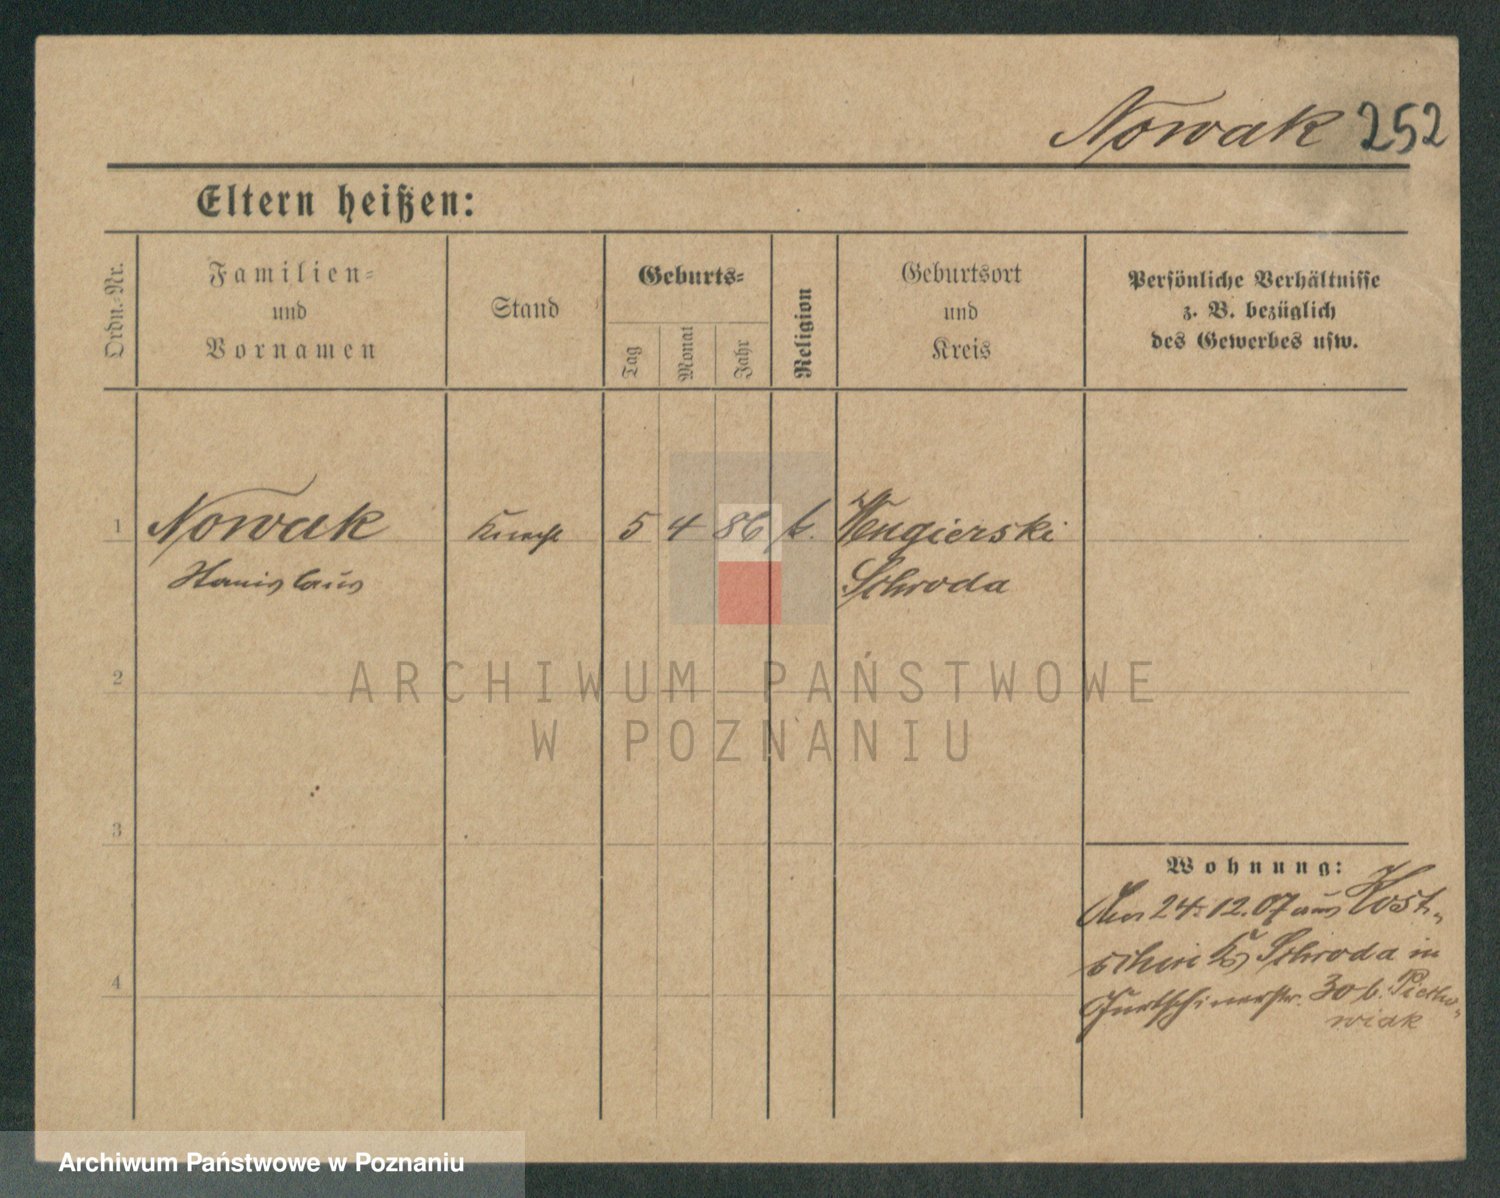 Nowak 252
Eltern heißen:
Ordn.-Nr.
Familien-
und
Vornamen
Stand
Geburts-
Tag
Monat
Jahr
Religion
Geburtsort
und
Kreis
Persönliche Verhältnisse
z. B. bezüglich
des Gewerbes usw.
1 Nowak Knecht 5 4 86 k. Wengierski
Stanislaus Schroda
2
ARCHIWUM PAŃSTWOWE
W POZNANIU
3
Wohnung:
24.12.07 aus Kost-
schin Schroda in
30 b.
wiak
4
Archiwum Państwowe w Poznaniu